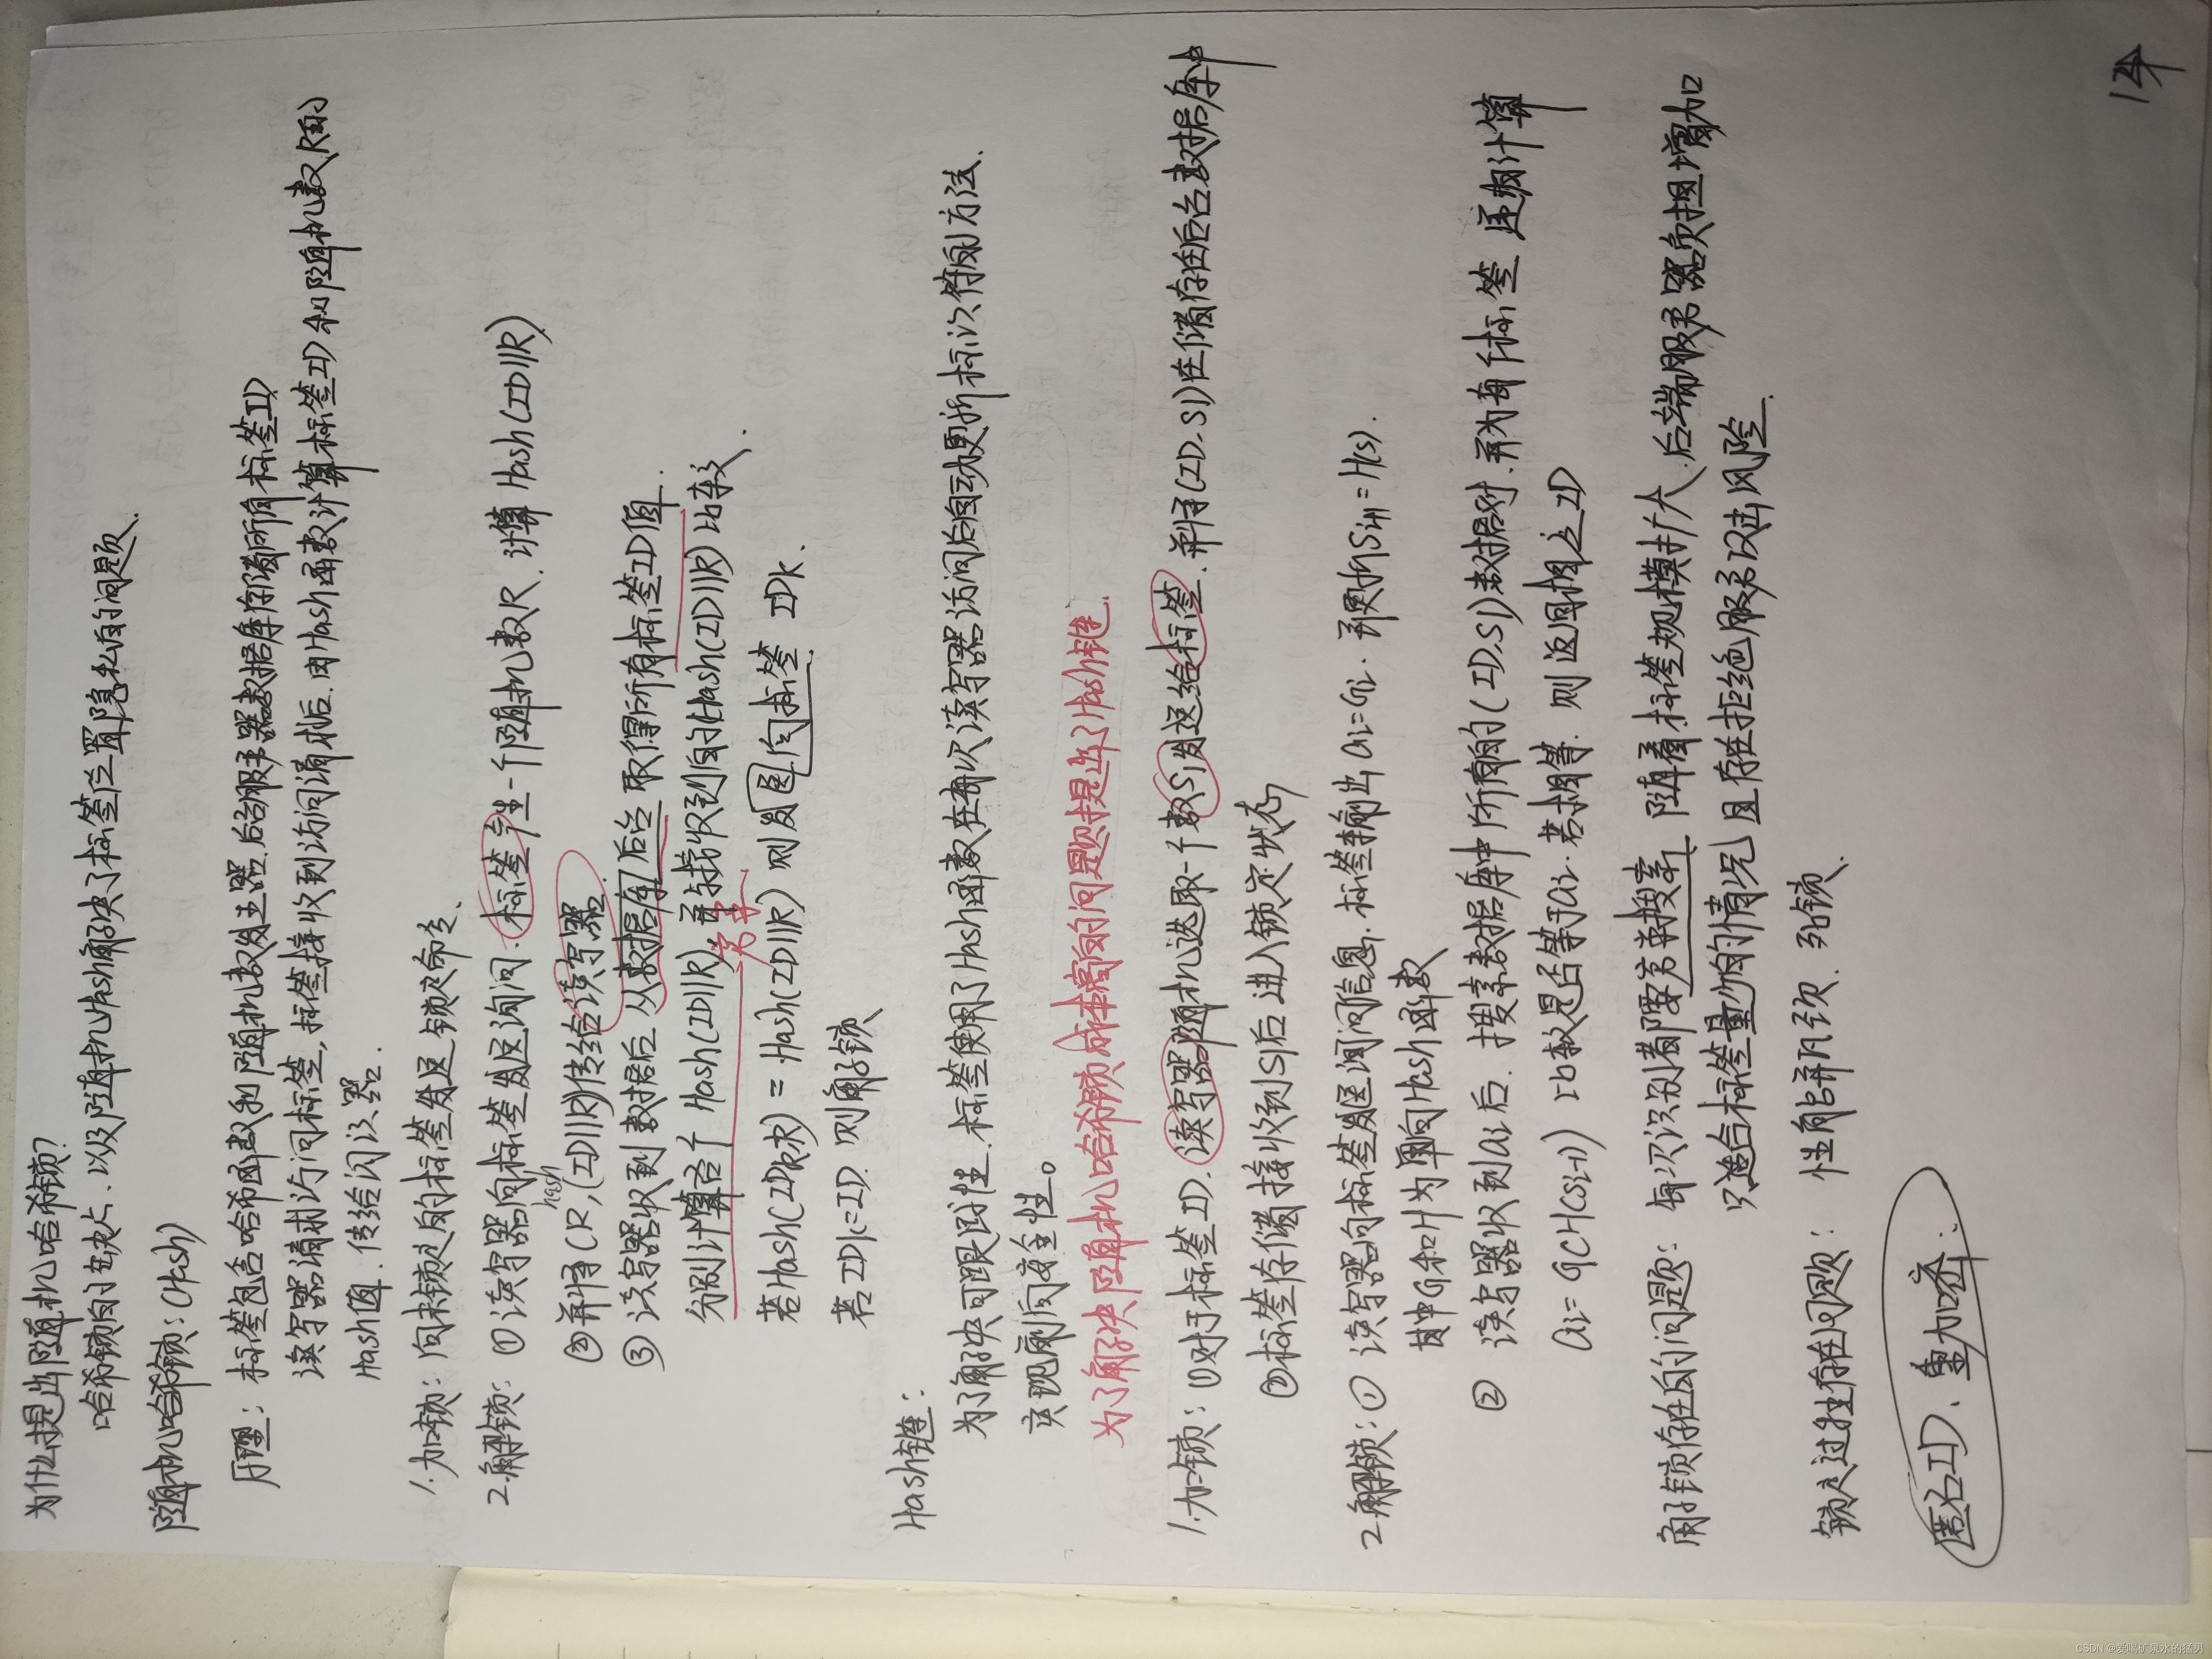 为什么提出随机哈希锁?
哈希锁的缺点、以及随机Hash解决了标签位置隐私的问题.
随机哈希锁: (Hash)
原理: 标签包含哈希函数和随机数发生器.后台服务器数据库存储所有标签ID
读写器请求访问标签,标签接收到访问请求后.由Hash函数计算标签ID和随机数R的
Hash值.传给阅读器.
1.加锁: 向未锁定的标签发送锁定命令.
2.解锁: ①读写器向标签发送询问.标签产生一个随机数R.计算Hash(ID||R)
②并将(R,hash(ID||R))传给读写器.
③读写器收到数据后 从数据库后台取得所有标签ID值.
分别计算各个Hash(ID||R)并与接收到的Hash(ID||R)比较.
穷举
若Hash(IDk||R) = Hash(ID||R) 则发回向标签IDk.
若IDk=ID.则解锁
Hash链:
为了解决可跟踪性.标签使用了Hash函数在每次读写器访问后自动更新标识符的方法.
实现前向安全性。
为了解决随机哈希锁成本高的问题提出了Hash链.
1.加锁: ①对于标签ID.读写器随机选取一个数S1发送给标签.并将(ID,S1)存储在后台数据库中
②标签存储接收到S1后进入锁定状态
2.解锁: ① 读写器向标签发送询问信息.标签输出ai=Gi.并更新Si+1=H(s).
其中G和H为单向Hash函数
② 读写器收到ai后.搜索数据库中所有的(ID,S1)数据对.并为每个标签 递归计算
ai=G(H(Si-1)) 比较是否等于ai.若相等.则返回相应ID
解锁存在的问题: 每次识别都要穷举搜索.随着标签规模扩大.后端服务器负担增加
只适合标签量少的情况 且存在拒绝服务攻击风险.
锁定过程存在问题: 性能瓶颈.死锁.
匿名ID、重加密.
CSDN @爱喝矿泉水的猛男